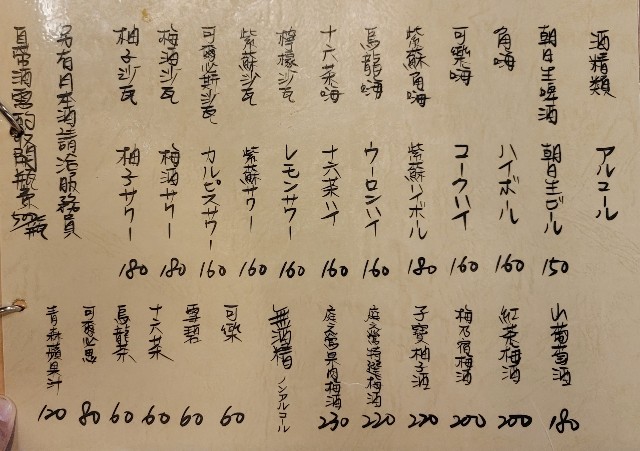 酒精類 アルコール
朝日生啤酒 朝日生ビール 150
角嗨 ハイボール 160
可樂嗨 コークハイ 160
紫蘇角嗨 紫蘇ハイボール 180
烏龍嗨 ウーロンハイ 160
十六茶嗨 十六茶ハイ 160
檸檬沙瓦 レモンサワー 160
紫蘇沙瓦 紫蘇サワー 160
可爾必斯沙瓦 カルピスサワー 160
梅酒沙瓦 梅酒サワー 180
柚子沙瓦 柚子サワー 180
另有日本酒請洽服務員
自帶酒需酌收開瓶費500/瓶
山葡萄酒 180
紅茶梅酒 200
梅乃宿梅酒 200
子寶柚子酒 220
庭之鶯特選梅酒 220
庭之鶯果肉梅酒 230
無酒精 ノンアルコール
可樂 60
雪碧 60
十六茶 60
烏龍茶 60
可爾必思 80
青森蘋果汁 120